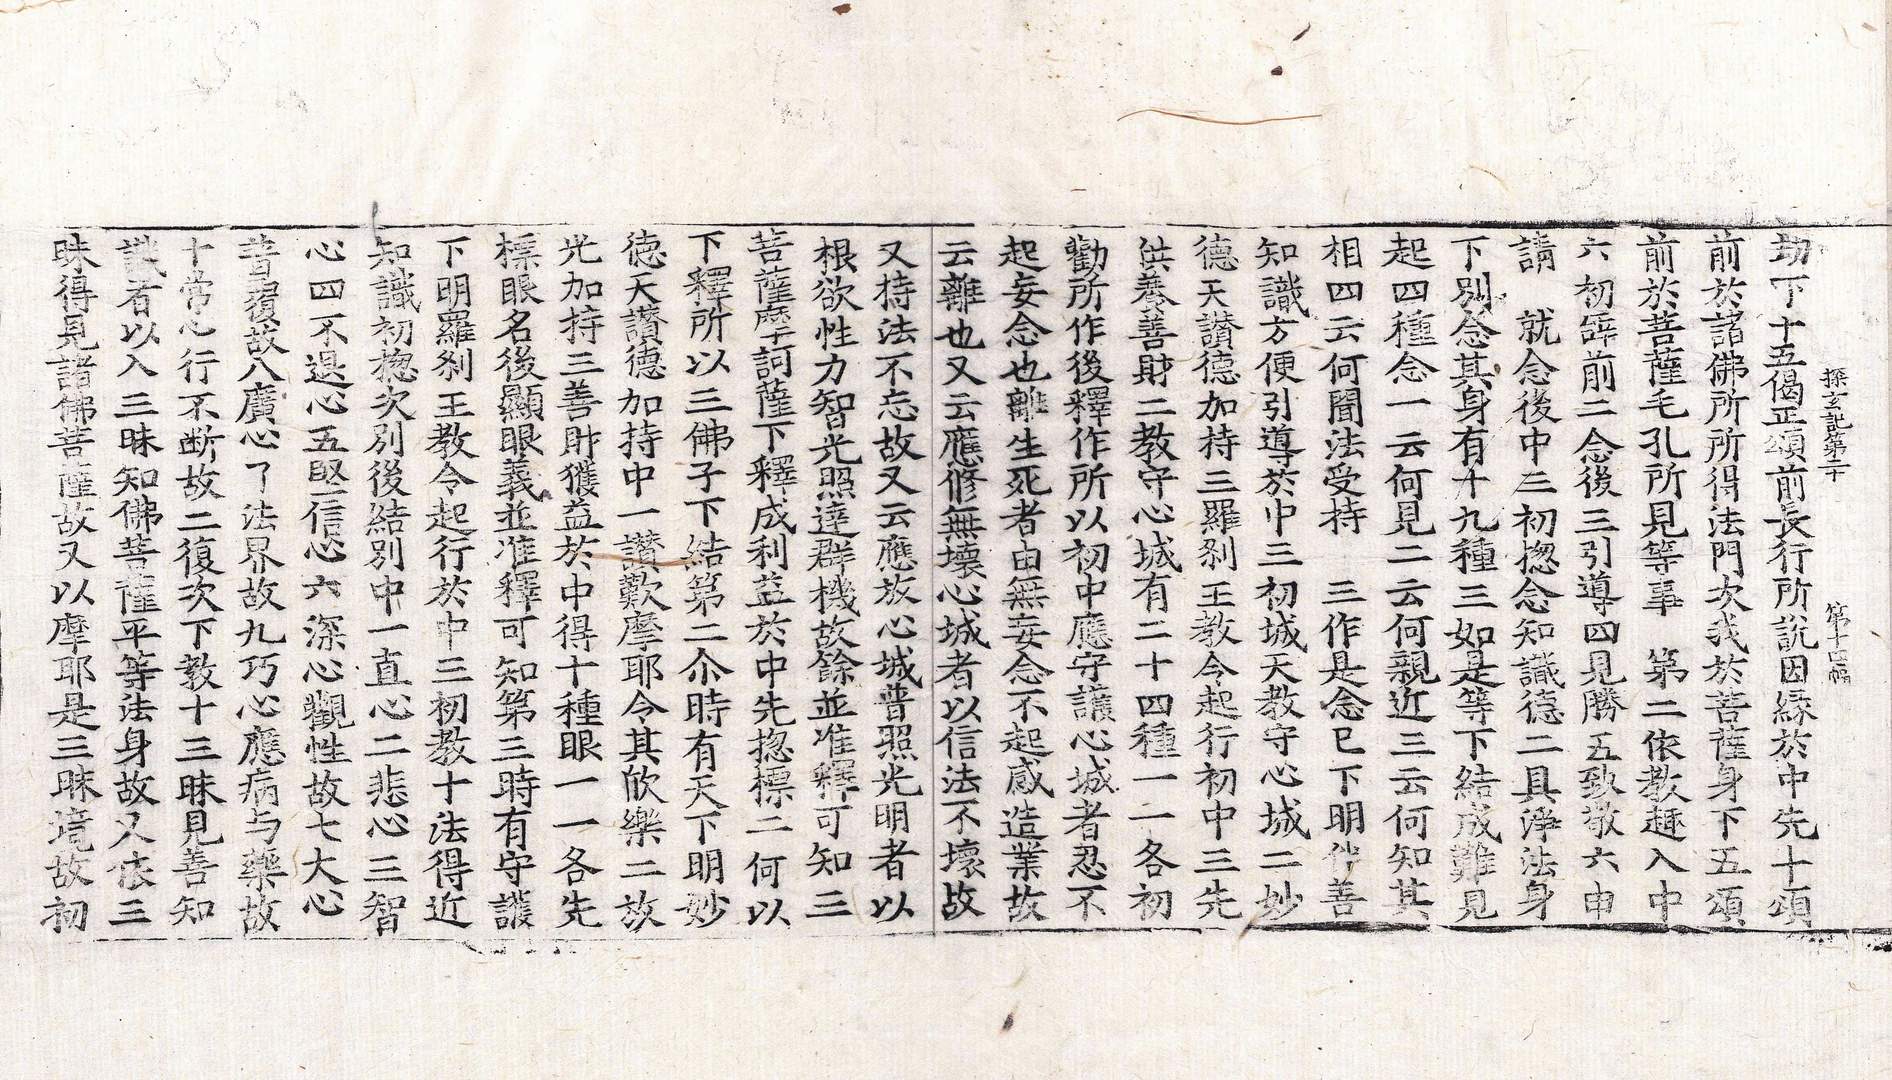 探玄記第二十　第十四幅
劫下十五偈正頌前長行所說因緣於中先十頌
前於諸佛所所得法門次我於菩薩身下五頌
前於菩薩毛孔所見等事　第二依教趣入中
六初辞前二念後三引導四見勝五致敬六申
請　就念後中三初揔念知識德二具淨法身
下別念其身有十九種三如是等下結成難見
起四種念一云何見二云何親近三云何知其
相四云何聞法受持　三作是念已下明伴善
知識方便引導於中三初城天教守心城二妙
德天讃德加持三羅剎王教令起行初中三先
供養善財二教守心城有二十四種一一各初
勸所作後釋作所以初中應守護心城者忍不
起妄念也離生死者由無妄念不起惑造業故
云離也又云應修無壞心城者以信法不壞故
又持法不忘故又云應放心城普照光明者以
根欲性力智光照達群機故餘並准釋可知三
菩薩摩訶薩下釋成利益於中先揔標二何以
下釋所以三佛子下結第二尒時有天下明妙
德天讃德加持中一讃歎摩耶令其欣樂二放
光加持三善財獲益於中得十種眼一一各先
標眼名後顯眼義並准釋可知第三時有守護
下明羅剎王教令起行於中三初教十法得近
知識初揔次別後結別中一直心二悲心三智
心四不退心五堅信心六深心觀性故七大心
普覆故八廣心了法界故九巧心應病与藥故
十常心行不斷故二復次下教十三昧見善知
識者以入三昧知佛菩薩平等法身故又依三
昧得見諸佛菩薩故又以摩耶是三昧境故初